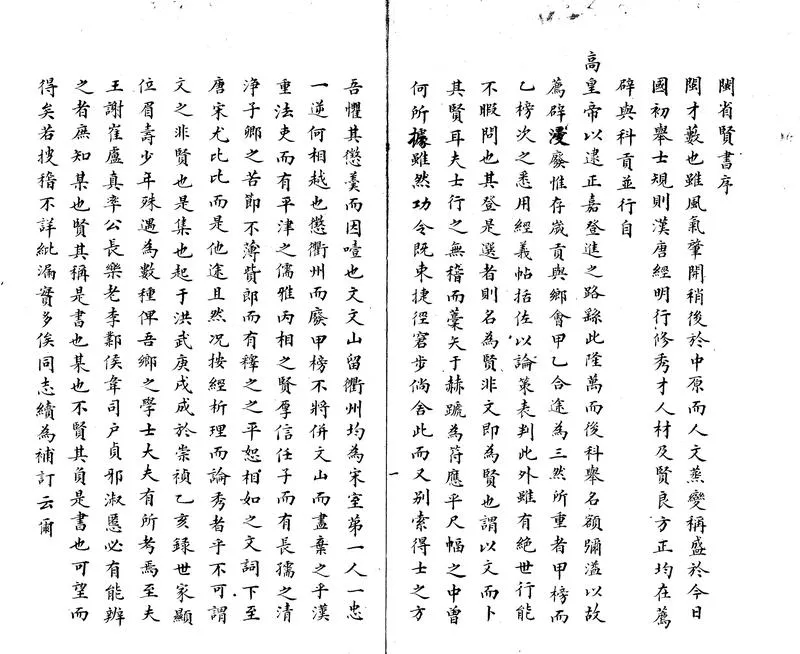 閩省賢書序
閩才藪也雖風氣肇開稍後於中原而人文蒸變稱盛於今日
國初舉士規則漢唐經明行修秀才人材及賢良方正均在薦
辟與科貢並行自
高皇帝以逮正嘉登進之路繇此隆萬而後科舉名額彌溢以故
薦辟漫廢惟存歲貢與鄉會甲乙合途為三然所重者甲榜而
乙榜次之悉用經義帖括佐以論策表判此外雖有絕世行能
不暇問也其登是選者則名為賢非文即為賢也謂以文而卜
其賢耳夫士行之無稽而藁矢于赫蹏為符應乎尺幅之中曾
何所據雖然功令既束捷徑窘步倘舍此而又別索得士之方
一
吾懼其懲羹而因噎也文文山留衢州均為宋室第一人一忠
一逆何相越也懲衢州而廢甲榜不將併文山而盡棄之乎漢
重法吏而有平津之儒雅丙相之賢厚信任子而有長孺之清
淨子卿之苦節不薄貲郎而有釋之之平恕相如之文詞下至
唐宋尤比比而是他途且然況按經析理而論秀者乎不可謂
文之非賢也是集也起于洪武庚戌成於崇禎乙亥錄世家顯
位眉壽少年殊遇為數種俾吾鄉之學士大夫有所考焉至夫
王謝崔盧真率公長樂老李鄴侯韋司戶貞邪淑慝必有能辨
之者庶知某也賢其稱是書也某也不賢其負是書也可望而
得矣若搜稽不詳紕漏實多俟同志續為補訂云爾